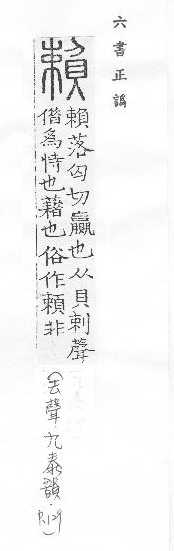 六書正譌
賴
賴落匄切贏也从貝剌聲
借為恃也藉也俗作頼非
(去聲.九泰韻.P.129)